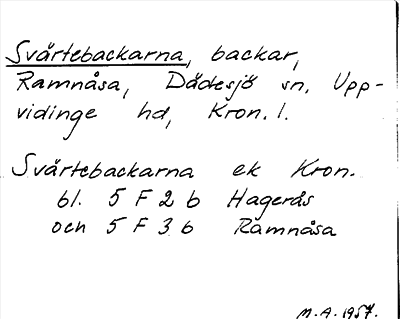 Svärtebackarna, backar,
Ramnåsa, Dädesjö sn. Upp-
vidinge hd, Kron. l.
Svärtebackarna ek Kron.
bl. 5 F 2 b Hagerås
och 5 F 3 b Ramnåsa
M. A. 1957.